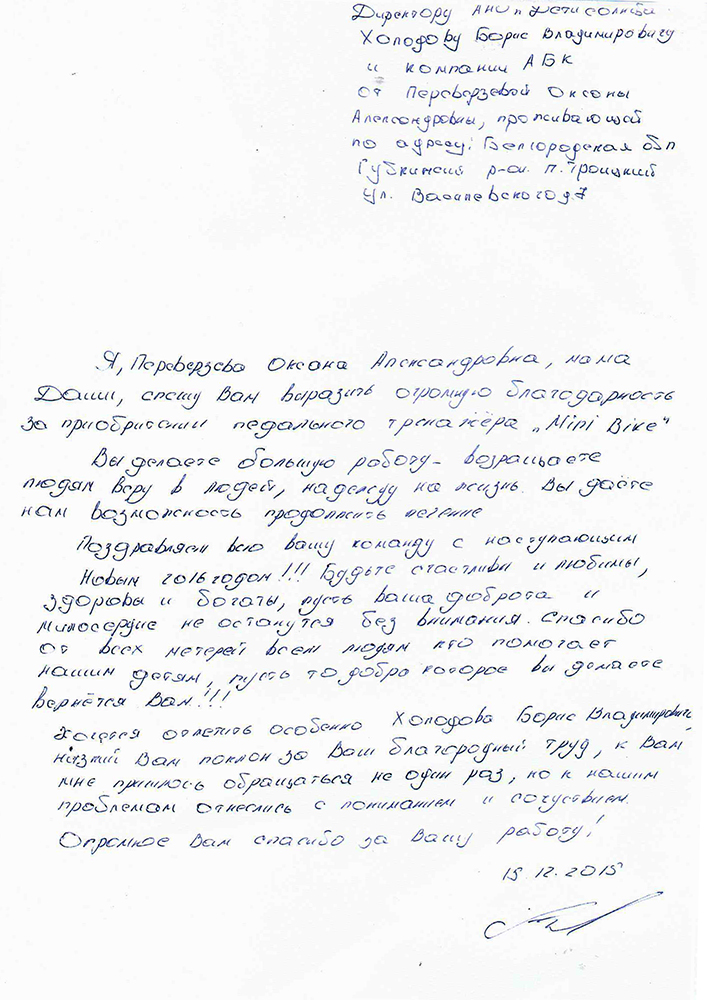 Директору АНО „Дети солнца"
Холодову Борис Владимировичу
и компании АБК
от Переверзевой Оксаны
Александровны, проживающей
по адресу: Белгородская обл
Губкинский р-он. п. Троицкий
ул. Васипевского д.7
Я, Переверзева Оксана Александровна, мама
Даши, спешу Вам выразить огромную благодарность
за приобритении педального тренажёра „Mini Bike"
Вы делаете большую работу - возращаете
людям веру в людей, надежду на жизнь. Вы даёте
нам возможность продолжить лечение
Поздравляем всю вашу команду с наступающим
Новым 2016 годом!!! Будьте счастливы и любимы,
здоровы и богаты, пусть ваша доброта и
милосердие не останутся без внимания. Спасибо
от всех матерей всем людям кто помогает
нашим детям, пусть то добро которое вы делаете
вернётся Вам!!!
Хочется отметить особенно Холодова Борис Владимировича
низкий Вам поклон за Ваш благородный труд, к Вам
мне пришлось обращаться не один раз, но к нашим
проблемам отнеслись с пониманием и сочуствием.
Огромное Вам спасибо за Вашу работу!
15.12.2015